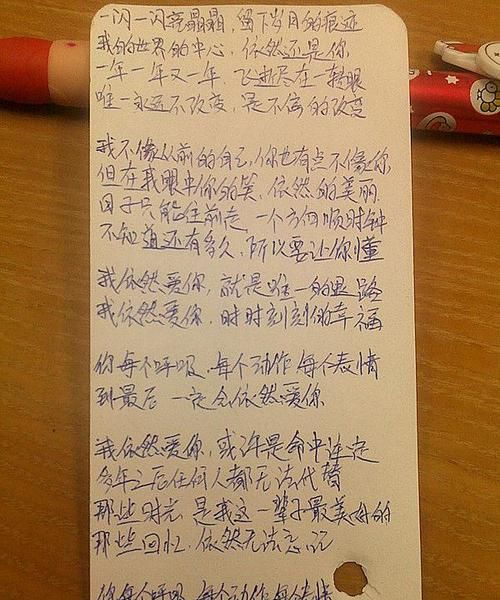 一闪一闪亮晶晶,留下岁月的痕迹
我的世界的中心,依然还是你
一年一年又一年,飞逝尽在一转眼
唯一永远不改变,是不停的改变
我不像从前的自己,你也有点不像你
但在我眼中你的笑,依然的美丽
日子只能往前走,一个方向顺时钟
不知道还有多久,所以要让你懂
我依然爱你,就是唯一的退路
我依然爱你,时时刻刻的幸福
你每个呼吸,每个动作,每个表情
到最后一定会依然爱你
我依然爱你,或许是命中注定
多年之后任何人都无法代替
那些时光,是我这一辈子最美好的
那些回忆,依然无法忘记
你每个呼吸,每个动作,每个表情